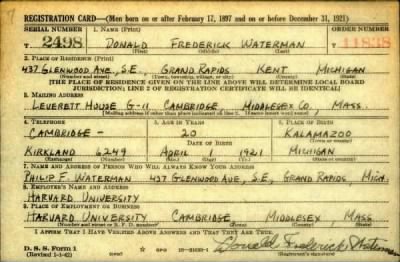 REGISTRATION CARD—(Men born on or after February 17, 1897 and on or before December 31, 1921)
SERIAL NUMBER 1. NAME (Print) ORDER NUMBER
T 2498 DONALD FREDERICK WATERMAN 11838
(First) (Middle) (Last)
2. PLACE OF RESIDENCE (Print)
437 GLENWOOD AVE., S.E., GRAND RAPIDS KENT MICHIGAN
(Number and street) (Town, township, village, or city) (County) (State)
[THE PLACE OF RESIDENCE GIVEN ON THE LINE ABOVE WILL DETERMINE LOCAL BOARD
JURISDICTION; LINE 2 OF REGISTRATION CERTIFICATE WILL BE IDENTICAL]
3. MAILING ADDRESS
LEVERETT HOUSE G-11, CAMBRIDGE, MIDDLESEX CO., MASS.
[Mailing address if other than place indicated on line 2. If same insert word same]
4. TELEPHONE 5. AGE IN YEARS 6. PLACE OF BIRTH
CAMBRIDGE - 20 KALAMAZOO
DATE OF BIRTH (Town or county)
KIRKLAND 6249 APRIL 1921 MICHIGAN
(Exchange) (Number) (Mo.) (Day) (Yr.) (State or country)
7. NAME AND ADDRESS OF PERSON WHO WILL ALWAYS KNOW YOUR ADDRESS
PHILIP F. WATERMAN 437 GLENWOOD AVE., S.E., GRAND RAPIDS MICH.
8. EMPLOYER'S NAME AND ADDRESS
HARVARD UNIVERSITY
9. PLACE OF EMPLOYMENT OR BUSINESS
HARVARD UNIVERSITY CAMBRIDGE MIDDLESEX, MASS
(Number and street or R. F. D. number) (Town) (County) (State)
I AFFIRM THAT I HAVE VERIFIED ABOVE ANSWERS AND THAT THEY ARE TRUE.
D. S. S. Form 1
(Revised 1-1-42) GPO Donald Frederick Waterman
(Registrant's signature)